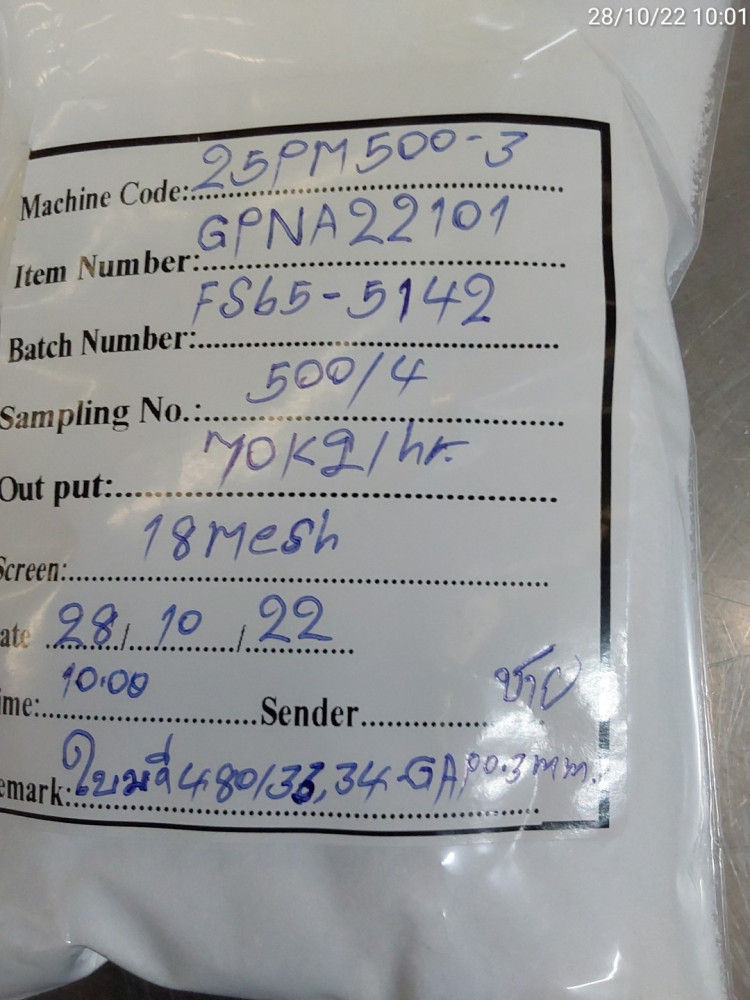 28/10/22 10:01
Machine Code: 25PM500-3
Item Number: GPNA22101
Batch Number: FS65-5142
Sampling No.: 500/4
Out put: 70Kg/hr.
Screen: 18 mesh
ate 28/ 10 / 22
ime: 10.00 Sender ชาย
emark: ใบมีด 480/33,34 GAP 0.3 mm.